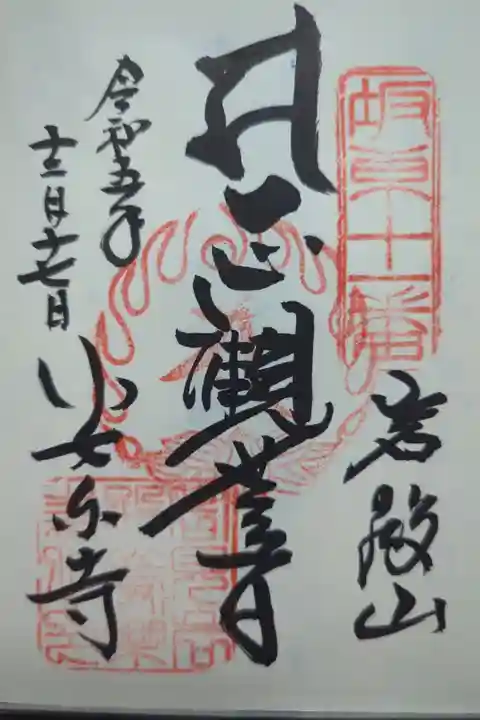 坂東十一番
岩殿山
正観世音
令和五年
十二月十七日
安楽寺